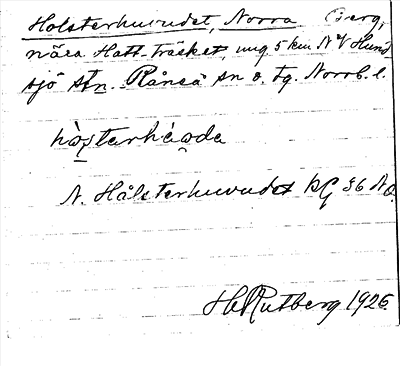 Holsterhuvudet, Norra (berg,
nära Hatt-träsket, ung. 5 km NV Hund-
sjö stn. Råneå sn o. tg. Norrb. l.
N. Hålsterhuvudet KG 36 NO.
H. Rutberg 1926.